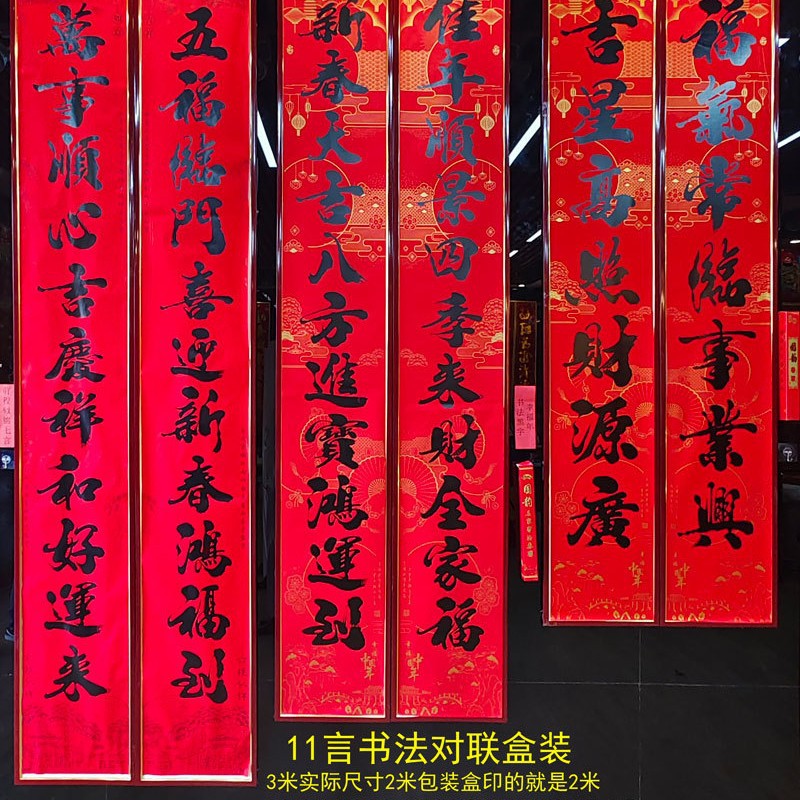 萬事順心吉慶祥和好運来
五福臨門喜迎新春鴻福到
新春大吉八方進寶鴻運到
佳年順景四季来財全家福
吉星高照財源廣
福氣常臨事業興
書法黑字
幸福年
11言书法对联盒装
3米实际尺寸2米包装盒印的就是2米